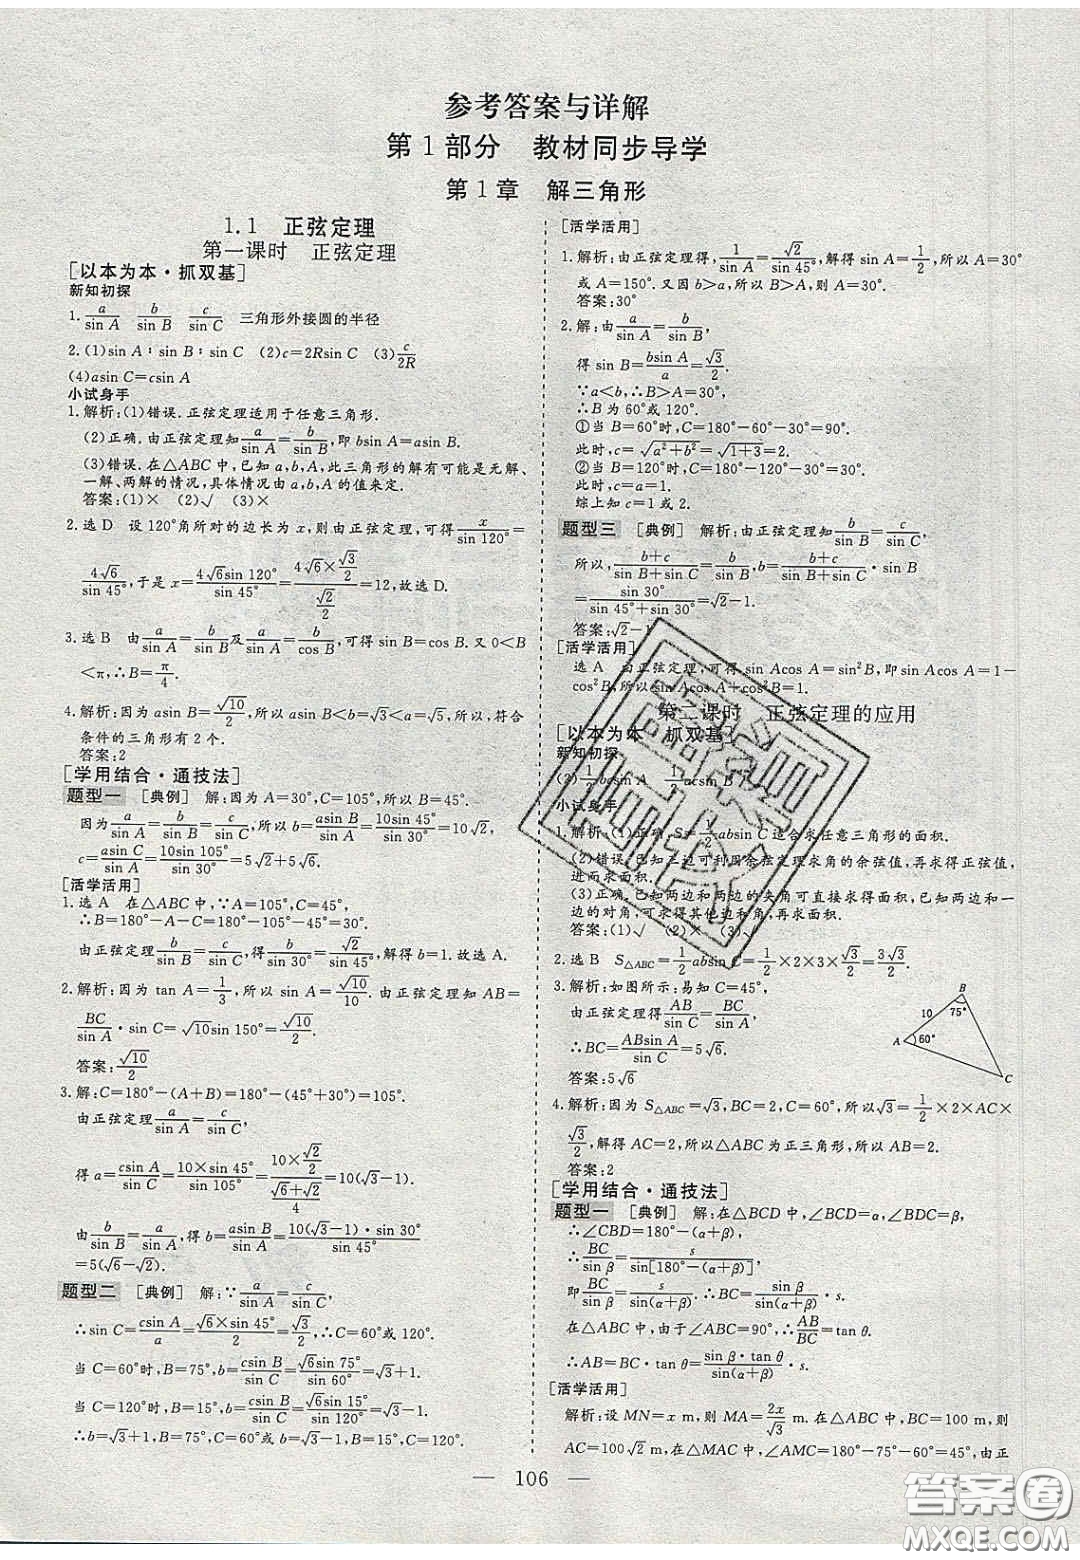 参考答案与详解
第1部分 教材同步导学
第1章 解三角形
1.1 正弦定理
第一课时 正弦定理
[以本为本·抓双基]
新知初探
1. a/sin A b/sin B c/sin C 三角形外接圆的半径
2.(1)sin A∶sin B∶sin C (2)c=2Rsin C (3)c/2R
(4)asin C=csin A
小试身手
1.解析:(1)错误.正弦定理适用于任意三角形.
(2)正确.由正弦定理知a/sin A=b/sin B,即bsin A=asin B.
(3)错误.在△ABC中,已知a,b,A,此三角形的解有可能是无解、
一解、两解的情况,具体情况由a,b,A的值来定.
答案:(1)× (2)√ (3)×
2.选D 设120°角所对的边长为x,则由正弦定理,可得x/sin 120°=
4√6/sin 45°,于是x=4√6sin 120°/sin 45°=(4√6×√3/2)/(√2/2)=12,故选D.
3.选B 由a/sin A=b/sin B及a/sin A=b/cos B,可得sin B=cos B.又0<B
<π,∴B=π/4.
4.解析:因为asin B=√10/2,所以asin B<b=√3<a=√5,所以符合
条件的三角形有2个.
答案:2
[学用结合·通技法]
题型一 [典例] 解:因为A=30°,C=105°,所以B=45°.
因为a/sin A=b/sin B=c/sin C,所以b=asin B/sin A=10sin 45°/sin 30°=10√2,
c=asin C/sin A=10sin 105°/sin 30°=5√2+5√6.
[活学活用]
1.选A 在△ABC中,∵A=105°,C=45°,
∴B=180°-A-C=180°-105°-45°=30°.
由正弦定理b/sin B=c/sin C,得b/sin 30°=√2/sin 45°,解得b=1.故选A.
2.解析:因为tan A=1/3,所以sin A=√10/10.由正弦定理知AB=
BC/sin A·sin C=√10sin 150°=√10/2.
答案:√10/2
3.解:C=180°-(A+B)=180°-(45°+30°)=105°.
由正弦定理a/sin A=c/sin C,
得a=csin A/sin C=10×sin 45°/sin 105°=(10×√2/2)/((√6+√2)/4)=10(√3-1).
由a/sin A=b/sin B,得b=asin B/sin A=10(√3-1)·sin 30°/sin 45°
=5(√6-√2).
题型二 [典例] 解:∵a/sin A=c/sin C,
∴sin C=csin A/a=√6×sin 45°/2=√3/2,∴C=60°或120°.
当C=60°时,B=75°,b=csin B/sin C=√6sin 75°/sin 60°=√3+1;
当C=120°时,B=15°,b=csin B/sin C=√6sin 15°/sin 120°=√3-1.
∴b=√3+1,B=75°,C=60°或b=√3-1,B=15°,C=120°.
[活学活用]
1.解析:由正弦定理得,1/sin A=√2/sin 45°,解得sin A=1/2,所以A=30°
或A=150°.又因b>a,所以B>A,则A=30°.
答案:30°
2.解:由a/sin A=b/sin B,
得sin B=bsin A/a=√3/2.
∵a<b,∴B>A=30°,
∴B为60°或120°.
①当B=60°时,C=180°-60°-30°=90°.
此时,c=√(a²+b²)=√(1+3)=2.
②当B=120°时,C=180°-120°-30°=30°.
此时,c=a=1.
综上知c=1或2.
题型三 [典例] 解析:由正弦定理知b/sin B=c/sin C,
所以,(b+c)/(sin B+sin C)=b/sin B,b=(b+c)/(sin B+sin C)·sin B
=sin 30°/(sin 45°+sin 30°)=√2-1.
答案:√2-1
[活学活用]
选A 由正弦定理,可得sin Acos A=sin²B,即sin Acos A=1-
cos²B,所以sin Acos A+cos²B=1.
第二课时 正弦定理的应用
[以本为本·抓双基]
新知初探
(2)1/2bcsin A 1/2acsin B
小试身手
1.解析:(1)正确,S=1/2absin C适合求任意三角形的面积.
(2)错误.已知三边可利用余弦定理求角的余弦值,再求得正弦值,
进而求面积.
(3)正确.已知两边和两边的夹角可直接求得面积,已知两边和一
边的对角,可求得其他边和角,再求面积.
答案:(1)√ (2)× (3)√
2.选B S△ABC=1/2absin C=1/2×2×3×√3/2=3√3/2.
3.解析:如图所示:易知C=45°,
由正弦定理得AB/sin C=BC/sin A,
∴BC=ABsin A/sin C=5√6.
答案:5√6
B
10
75°
A
60°
C
4.解析:因为S△ABC=√3,BC=2,C=60°,所以√3=1/2×2×AC×
√3/2,解得AC=2,所以△ABC为正三角形,所以AB=2.
答案:2
[学用结合·通技法]
题型一 [典例] 解:在△BCD中,∠BCD=α,∠BDC=β,
∴∠CBD=180°-(α+β),
∴BC/sin β=s/sin[180°-(α+β)],
即BC/sin β=s/sin(α+β).∴BC=sin β/sin(α+β)·s.
在△ABC中,由于∠ABC=90°,∴AB/BC=tan θ.
∴AB=BC·tan θ=sin β·tan θ/sin(α+β)·s.
[活学活用]
解析:设MN=x m,则MA=2x/√3 m.在△ABC中,BC=100 m,则
AC=100√2 m,在△MAC中,∠AMC=180°-75°-60°=45°,由正
— 106 —
答案圈
MXQE.COM